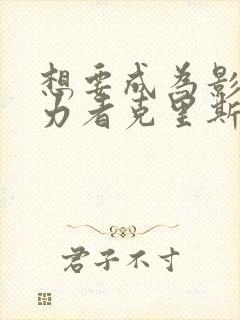 想要成为影
力者克里斯
君子不寸